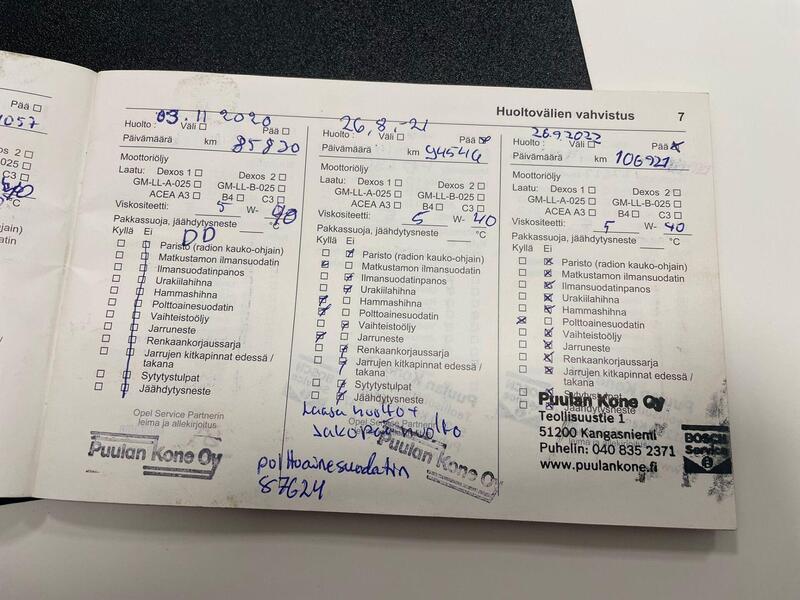 Pää
1057
os 2
025
C3
Huoltovälien vahvistus 7
03.11 2020
Huolto: Väli Pää
Päivämäärä km 85820
Moottoriöljy
Laatu: Dexos 1 Dexos 2
GM-LL-A-025 GM-LL-B-025
ACEA A3 B4 C3
Viskositeetti: 5 W- 40
Pakkassuoja, jäähdytysneste °C
DD
Kyllä Ei
Paristo (radion kauko-ohjain)
Matkustamon ilmansuodatin
Ilmansuodatinpanos
Urakiilahihna
Hammashihna
Polttoainesuodatin
Vaihteistoöljy
Jarruneste
Renkaankorjaussarja
Jarrujen kitkapinnat edessä /
takana
Sytytystulpat
Jäähdytysneste
Opel Service Partnerin
leima ja allekirjoitus
Puulan Kone Oy
26.8.-21
Huolto: Väli Pää
Päivämäärä km 94546
Moottoriöljy
Laatu: Dexos 1 Dexos 2
GM-LL-A-025 GM-LL-B-025
ACEA A3 B4 C3
Viskositeetti: 5 W- 40
Pakkassuoja, jäähdytysneste °C
Kyllä Ei
Paristo (radion kauko-ohjain)
Matkustamon ilmansuodatin
Ilmansuodatinpanos
Urakiilahihna
Hammashihna
Polttoainesuodatin
Vaihteistoöljy
Jarruneste
Renkaankorjaussarja
Jarrujen kitkapinnat edessä /
takana
Sytytystulpat
Jäähdytysneste
Laaja huolto+
jakopää huolto
Puulan Kone Oy
polttoainesuodatin
87624
26.9.2022
Huolto: Väli Pää
Päivämäärä km 106921
Moottoriöljy
Laatu: Dexos 1 Dexos 2
GM-LL-A-025 GM-LL-B-025
ACEA A3 B4 C3
Viskositeetti: 5 W- 40
Pakkassuoja, jäähdytysneste °C
Kyllä Ei
Paristo (radion kauko-ohjain)
Matkustamon ilmansuodatin
Ilmansuodatinpanos
Urakiilahihna
Hammashihna
Polttoainesuodatin
Vaihteistoöljy
Jarruneste
Renkaankorjaussarja
Jarrujen kitkapinnat edessä /
takana
Sytytystulpat
Jäähdytysneste
Puulan Kone Oy
Teollisuustie 1
51200 Kangasniemi
Puhelin: 040 835 2371
www.puulankone.fi
BOSCH
Service